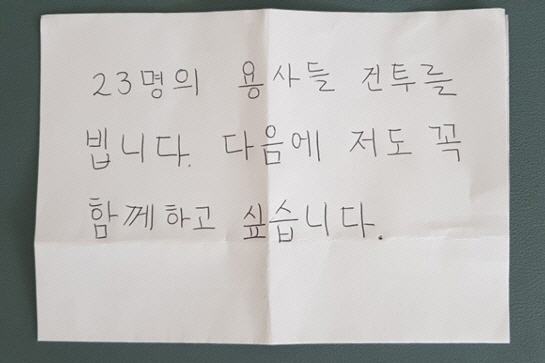 23명의 용사들 건투를
빕니다. 다음에 저도 꼭
함께하고 싶습니다.